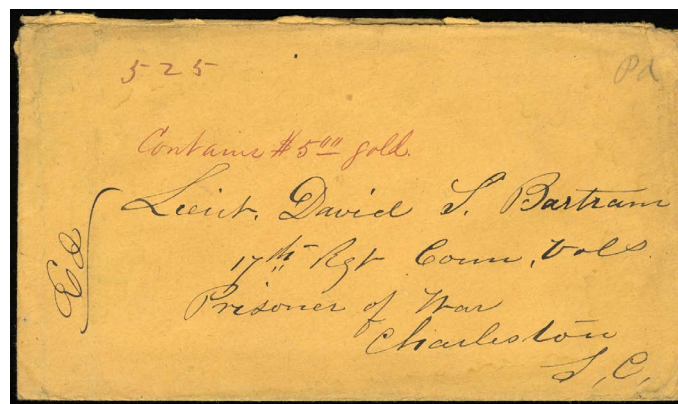 525
Pd
Contains $5.00 gold.
Lieut. David S. Bartram
17th Rgt Conn. Vols
Prisoner of War
Charleston
S. C.